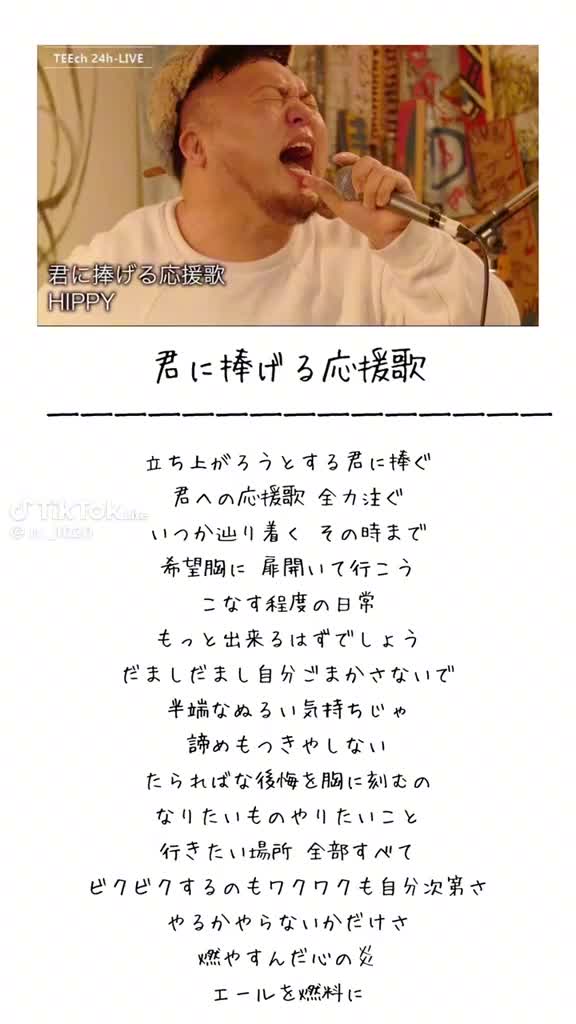 TEEch 24h-LIVE
君に捧げる応援歌
HIPPY
君に捧げる応援歌
立ち上がろうとする君に捧ぐ
君への応援歌 全力注ぐ
TikTok Lite
いつか辿り着く その時まで
希望胸に 扉開いて行こう
こなす程度の日常
もっと出来るはずでしょう
だましだまし自分ごまかさないで
半端なぬるい気持ちじゃ
諦めもつきやしない
たらればな後悔を胸に刻むの
なりたいものやりたいこと
行きたい場所 全部すべて
ビクビクするのもワクワクも自分次第さ
やるかやらないかだけさ
燃やすんだ心の炎
エールを燃料に